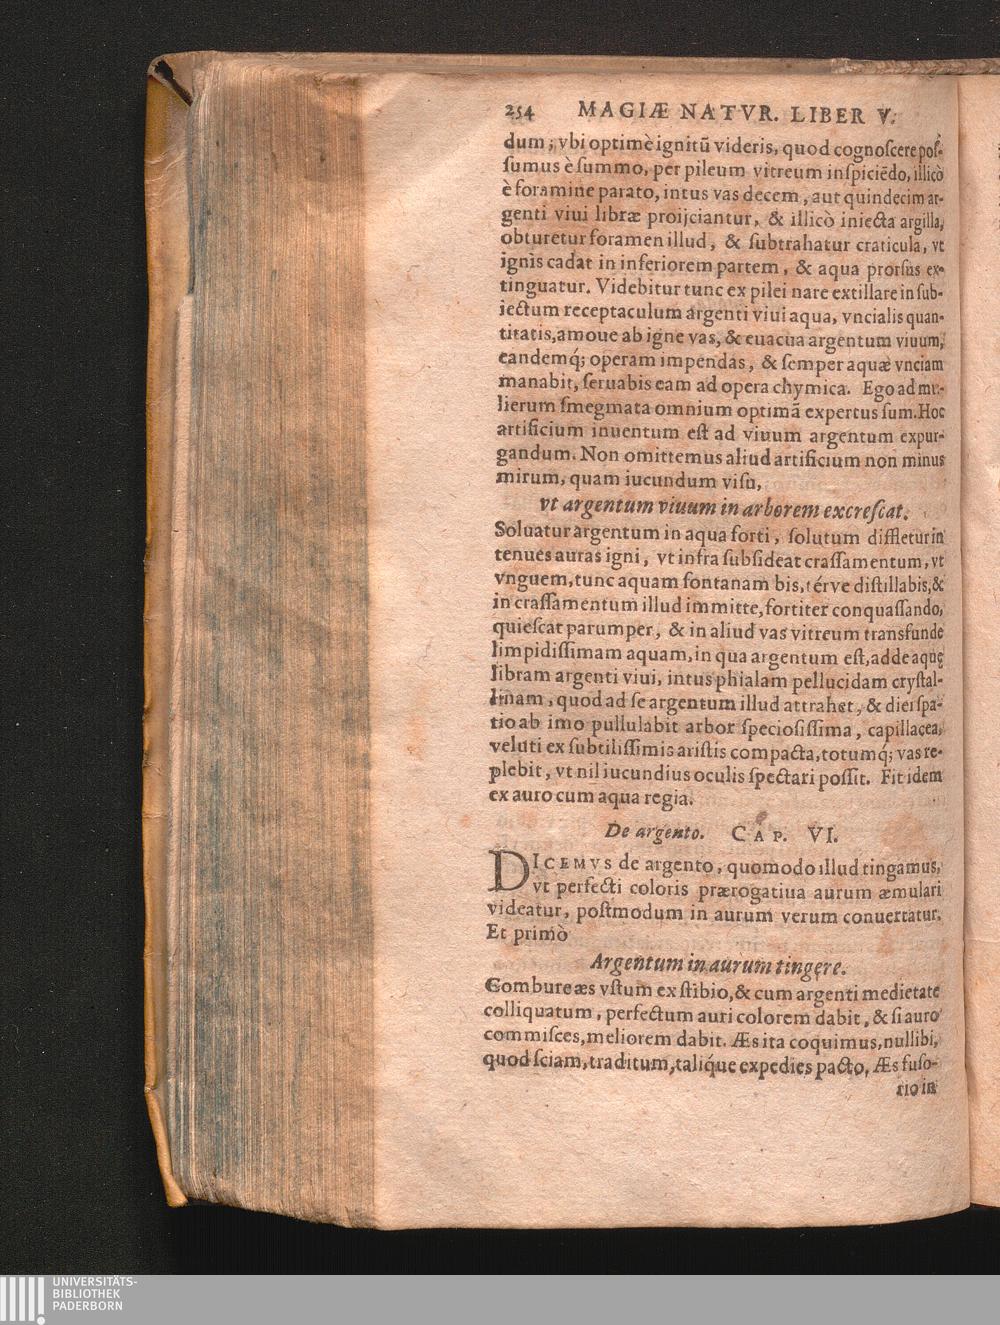 254 MAGIÆ NATVR. LIBER V.
dum; vbi optimè ignitũ videris, quod cognoſcere poſ-
ſumus è ſummo, per pileum vitreum inſpiciẽdo, illicò
è foramine parato, intus vas decem, aut quindecim ar-
genti viui libræ proijciantur, & illicò iniecta argilla,
obturetur foramen illud, & ſubtrahatur craticula, vt
ignis cadat in inferiorem partem, & aqua prorſus ex-
tinguatur. Videbitur tunc ex pilei nare extillare in ſub-
iectum receptaculum argenti viui aqua, vncialis quan-
titatis, amoue ab igne vas, & euacua argentum viuum,
eandemq́; operam impendas, & ſemper aquæ vnciam
manabit, ſeruabis eam ad opera chymica. Ego ad mu-
lierum ſmegmata omnium optimã expertus ſum. Hoc
artificium inuentum eſt ad viuum argentum expur-
gandum. Non omittemus aliud artificium non minus
mirum, quam iucundum viſu,
vt argentum viuum in arborem excreſcat.
Soluatur argentum in aqua forti, ſolutum diffletur in
tenues auras igni, vt infra ſubſideat craſſamentum, vt
vnguem, tunc aquam fontanam bis, térve diſtillabis, &
in craſſamentum illud immitte, fortiter conquaſſando,
quieſcat parumper, & in aliud vas vitreum transfunde
limpidiſſimam aquam, in qua argentum eſt, adde aquę
libram argenti viui, intus phialam pellucidam cryſtal-
linam, quod ad ſe argentum illud attrahet, & diei ſpa-
tio ab imo pullulabit arbor ſpecioſiſſima, capillacea,
veluti ex ſubtiliſſimis ariſtis compacta, totumq́; vas re-
plebit, vt nil iucundius oculis ſpectari poſſit. Fit idem
ex auro cum aqua regia.
De argento. CAP. VI.
DICEMVS de argento, quomodo illud tingamus,
vt perfecti coloris prærogatiua aurum æmulari
videatur, poſtmodum in aurum verum conuertatur.
Et primò
Argentum in aurum tingere.
Combure æs vſtum ex ſtibio, & cum argenti medietate
colliquatum, perfectum auri colorem dabit, & ſi auro
commiſces, meliorem dabit. Æs ita coquimus, nullibi,
quod ſciam, traditum, talíque expedies pacto, Æs fuſo-
rio in
UNIVERSITÄTS-
BIBLIOTHEK
PADERBORN